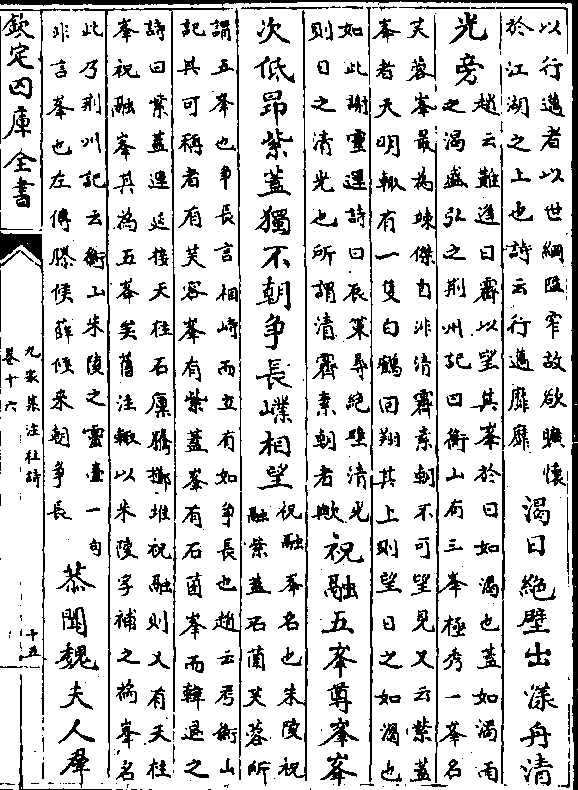 以行邁者以世網隘窄故欲曠懷
於江湖之上也詩云行邁靡靡
渴日絕壁出漾舟清
光旁
趙云難逢日霽以望其峯於日如渴也蓋如渴雨
之渴盛弘之荆州記曰衡山有三峯極秀一峯名
芙蓉峯最為竦傑自非清霽素朝不可望見又云紫蓋
峯者天明輙有一隻白鶴回翔其上則望日之如渴也
如此謝靈運詩曰辰策尋絕壁清光
則日之清光也所謂清霽素朝者歟
祝融五峯尊峯峯
次低昂紫蓋獨不朝爭長嶫相望
祝融峯名也朱陵祝
融紫蓋石菌芙蓉所
謂五峯也爭長言相峙而立有如爭長也趙云考衡山
記其可稱者有芙容峯有紫蓋峯有石菌峯而韓退之
詩曰紫蓋連延接天柱石廩騰擲堆祝融則又有天柱
峯祝融峯其為五峯矣舊注輙以朱陵字補之為峯名
此乃荆州記云衡山朱陵之靈臺一句
非言峯也左傳滕侯薛侯來朝爭長
恭聞魏夫人羣
欽定四庫全書
九家集注杜詩
卷十六
十五